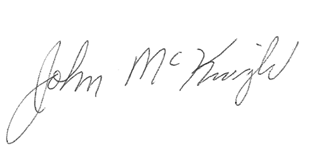 John McKnight